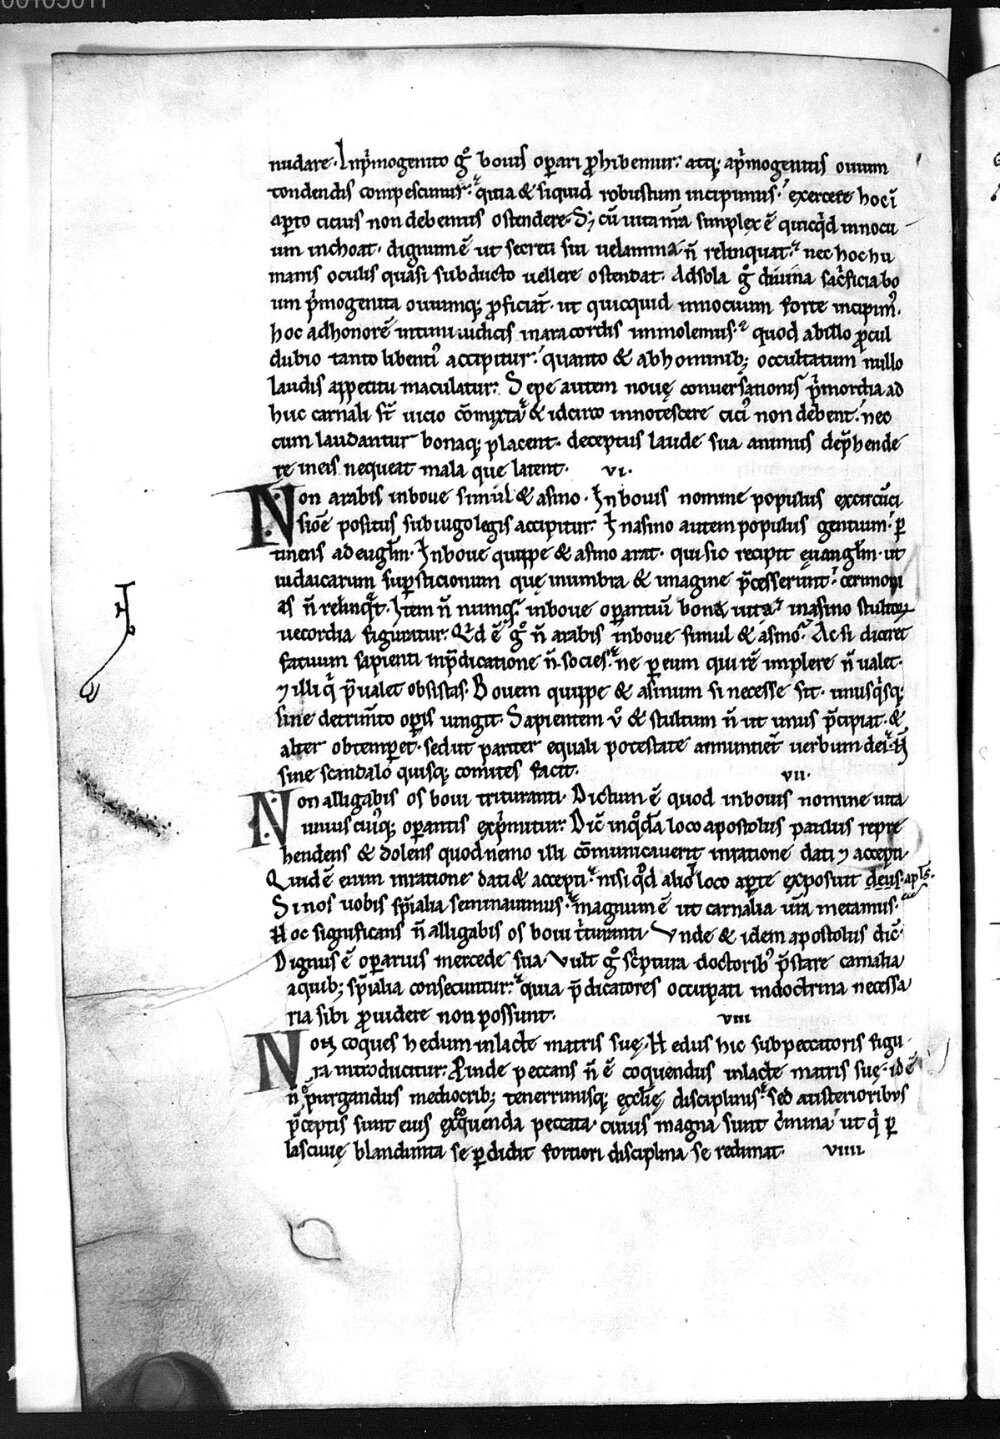 nudare. Inp̄mogenito g° bouis op̄ari ꝓhibemur. atq; ap̄mogenitis ouium
tondendis compescimur. quia & siquid robustum incipimus. exercere hoc ī
ap̄to cicius non debemus ostendere. S; cū uita n̄ra simplex ē quicq'd innocu
um inchoat. dignum ē ut secreti sui uelamina n̄ relinquat. nec hoc hu
manis oculis quasi subducto uellere ostendat. Ad sola g° diuina sac'ficia bo
um p'mogenita ouiumq; ꝓficiāt. ut quicquid innocuum forte incipim'.
hoc adhonorē intimi iudicis inara cordis immolemus. quod abillo ꝓcul
dubio tanto libenti' accipitur. quanto & abhominib; occultatum nullo
laudis appetitu maculatur. Sepe autem nouę conuersationis p'mordia ad
huc carnali sī uicio cōmixta & idcirco innotescere cici' non debent. nec
cum laudantur bonaq; placent. deceptus laude sua animus dep̄hende
re in eis nequeat mala que latent. vi.
Non arabis inboue simul & asino. In bouis nomine populus excircūci
sioē positus sub iugo legis accipitur. In asino autem populus gentium. ꝑ
tinens ad eugłm. In boue quippe & asino arat. qui sic recipit euangłm. ut
iudaicarum sup̄sticionum quę inumbra & imagine p̄cesserunt. cerimoni
as n̄ relinq't. Item n̄ numq̄ inboue operantiū bona uita. inasino stultorū
uecordia figuratur. Q'd ē g° n̄ arabis inboue simul & asino. Ac si diceret
fatuum sapienti inp̄dicatione n̄ socies. ne ꝑ eum qui rē implere n̄ ualet.
⁊ illi q' p̄ualet obsistas. Bouem quippe & asinum si necesse sit. unusq'sq;
sine detrim̄to opis iungit. Sapientem ů & stultum n̄ ut unus p̄cipiat. &
alter obtemperet. sed ut pariter equali potestate annuntiet uerbum dei. n̄
sine scandalo quisq; comites facit. vii.
Non alligabis os boui trituranti. Dictum ē quod in bouis nomine uita
unius cui'q; operantis exp'mitur. Dic̄ inq°dā loco apostolus paulus repre
hendens & dolens quod nemo illi cōmunicauerit inratione dati ⁊ accepti.
Quid ē enim inratione dati & accepti. nisi q°d alio loco aperte exposuit deus. apłs.
Si nos uobis sp̄ialia seminauimus. magnum ē ut carnalia ur̄a metamus.
Hoc significans n̄ alligabis os boui t'turanti. Vnde & idem apostolus dic̄.
Dignus ē operarius mercede sua. Vult g° sc'ptura doctorib' p̄stare carnalia
a quib; sp̄ialia consecuntur. quia p̄dicatores occupati indoctrina necessa
ria sibi ꝓuidere non possunt. viii
Non coques hedum inlacte matris suę. Hedus hic sub peccatoris figu
ra introducitur. Proinde peccans n̄ ē coquendus inlacte matris suę. id ē
n̄ purgandus mediocrib; tenerrimisq; ęcclīę disciplinis. sed austerioribus
p̄ceptis sunt eius exq°quenda peccata. cuius magna sunt c'mina. ut q' ꝑ
lasciuię blandim̄ta se ꝑdidit fortiori disciplina se redimat. viiii.